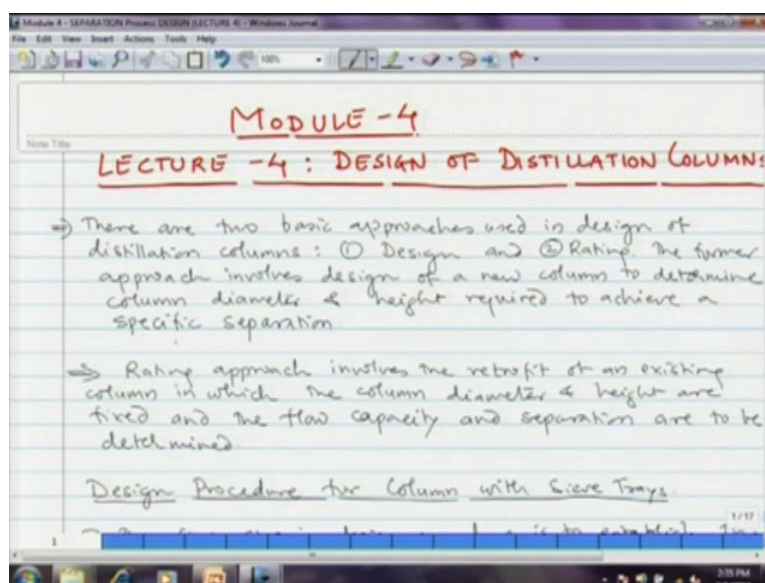 Module 4 - SEPARATION Process DESIGN (LECTURE 4) - Windows Journal
File Edit View Insert Actions Tools Help
100%
MODULE-4
Note Title
LECTURE -4 : DESIGN OF DISTILLATION COLUMNS
⇒ There are two basic approaches used in design of
distillation columns : ① Design and ② Rating. The former
approach involves design of a new column to determine
column diameter & height required to achieve a
specific separation
⇒ Rating approach involves the retrofit of an existing
column in which the column diameter & height are
fixed and the flow capacity and separation are to be
determined.
Design Procedure for Column with Sieve Trays
is to establish
1/17
1
2:35 PM